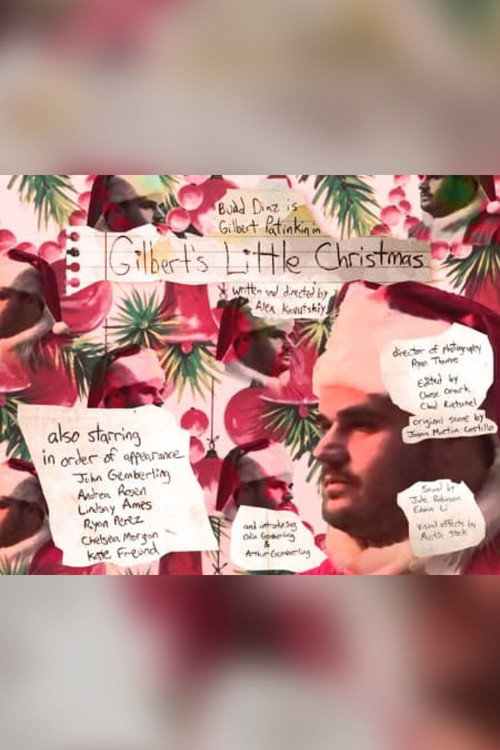 Budd Diaz is
Gilbert Patinkin in
Gilbert's Little Christmas
* written and directed by
Alex Kavutskiy
director of photography
Ryan Thomas
Edited by
Chase
Chad
original score by
Jason Martin Castillo
also starring
in order of appearance
John Gemberling
Andrea Rosen
Lindsay Ames
Ryan Perez
Chelsea Morgan
Kate Freund
and introducing
Gemberling
&
Arthur Gemberling
Sound by
Jule Robinson
Edwin Li
Visual effects by